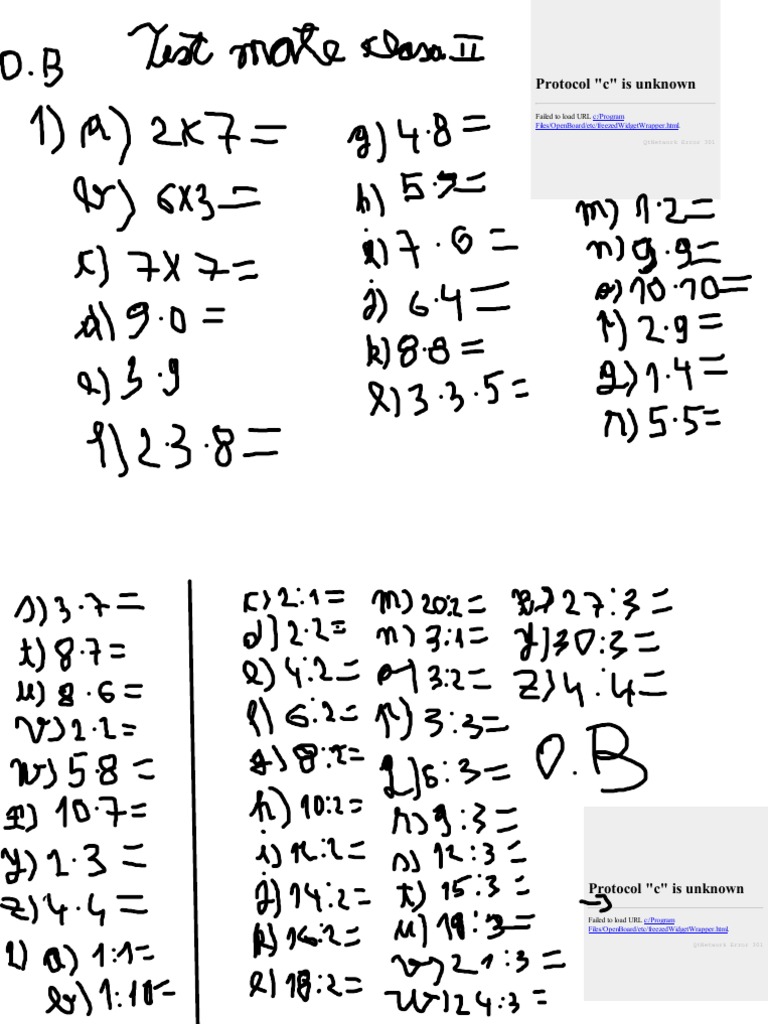 O.B
Test mate clasa II
1) a) 2x7=
b) 6x3=
c) 7x7=
d) 9·0=
e) 3·9
f) 2·3·8=
g) 4·8=
h) 5·7=
i) 7·6=
j) 6·4=
k) 8·8=
l) 3·3·5=
Protocol "c" is unknown
Failed to load URL c:/Program
Files/OpenBoard/etc/freezedWidgetWrapper.html.
QtNetwork Error 301
m) 1·2=
n) 9·9=
o) 10·10=
p) 2·9=
q) 1·4=
r) 5·5=
s) 3·7=
t) 8·7=
u) 8·6=
v) 2·2=
w) 5·8=
x) 10·7=
y) 2·3=
z) 4·4=
2) a) 1:1=
b) 1:10=
c) 2:1=
d) 2·2=
e) 4:2=
f) 6:2=
g) 8:2=
h) 10:2=
i) 12:2=
j) 14:2=
k) 16:2=
l) 18:2=
m) 20:2=
n) 3:1=
o) 3:2=
p) 3:3=
q) 6:3=
r) 9:3=
s) 12:3=
t) 15:3=
u) 18:3=
v) 21:3=
w) 24:3=
27:3=
y) 30:3=
z) 4:4=
O.B
Protocol "c" is unknown
Failed to load URL c:/Program
Files/OpenBoard/etc/freezedWidgetWrapper.html.
QtNetwork Error 301